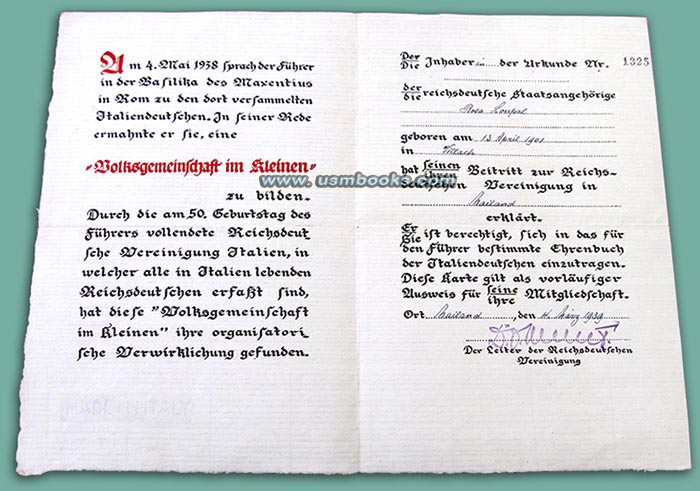 Am 4. Mai 1938 sprach der Führer
in der Basilika des Maxentius
in Rom zu den dort versammelten
Italiendeutschen. In seiner Rede
ermahnte er sie, eine
"Volksgemeinschaft im Kleinen"
zu bilden.
Durch die am 50. Geburtstag des
Führers vollendete Reichsdeut
sche Vereinigung Italien, in
welcher alle in Italien lebenden
Reichsdeutschen erfaßt sind,
hat diese "Volksgemeinschaft
im Kleinen" ihre organisatori
sche Verwirklichung gefunden.
Der
Die Inhaberin der Urkunde Nr. 1325
der
die reichsdeutsche Staatsangehörige
Rosa
geboren am 13 April 1901
in Villach
hat seinen
ihren Beitritt zur Reichs-
deutschen Vereinigung in
Mailand
erklärt.
Er
Sie ist berechtigt, sich in das für
den Führer bestimmte Ehrenbuch
der Italiendeutschen einzutragen.
Diese Karte gilt als vorläufiger
Ausweis für seine
ihre Mitgliedschaft.
Ort Mailand, den 4. März 1939
Der Leiter der Reichsdeutschen
Vereinigung
www.usmbooks.com